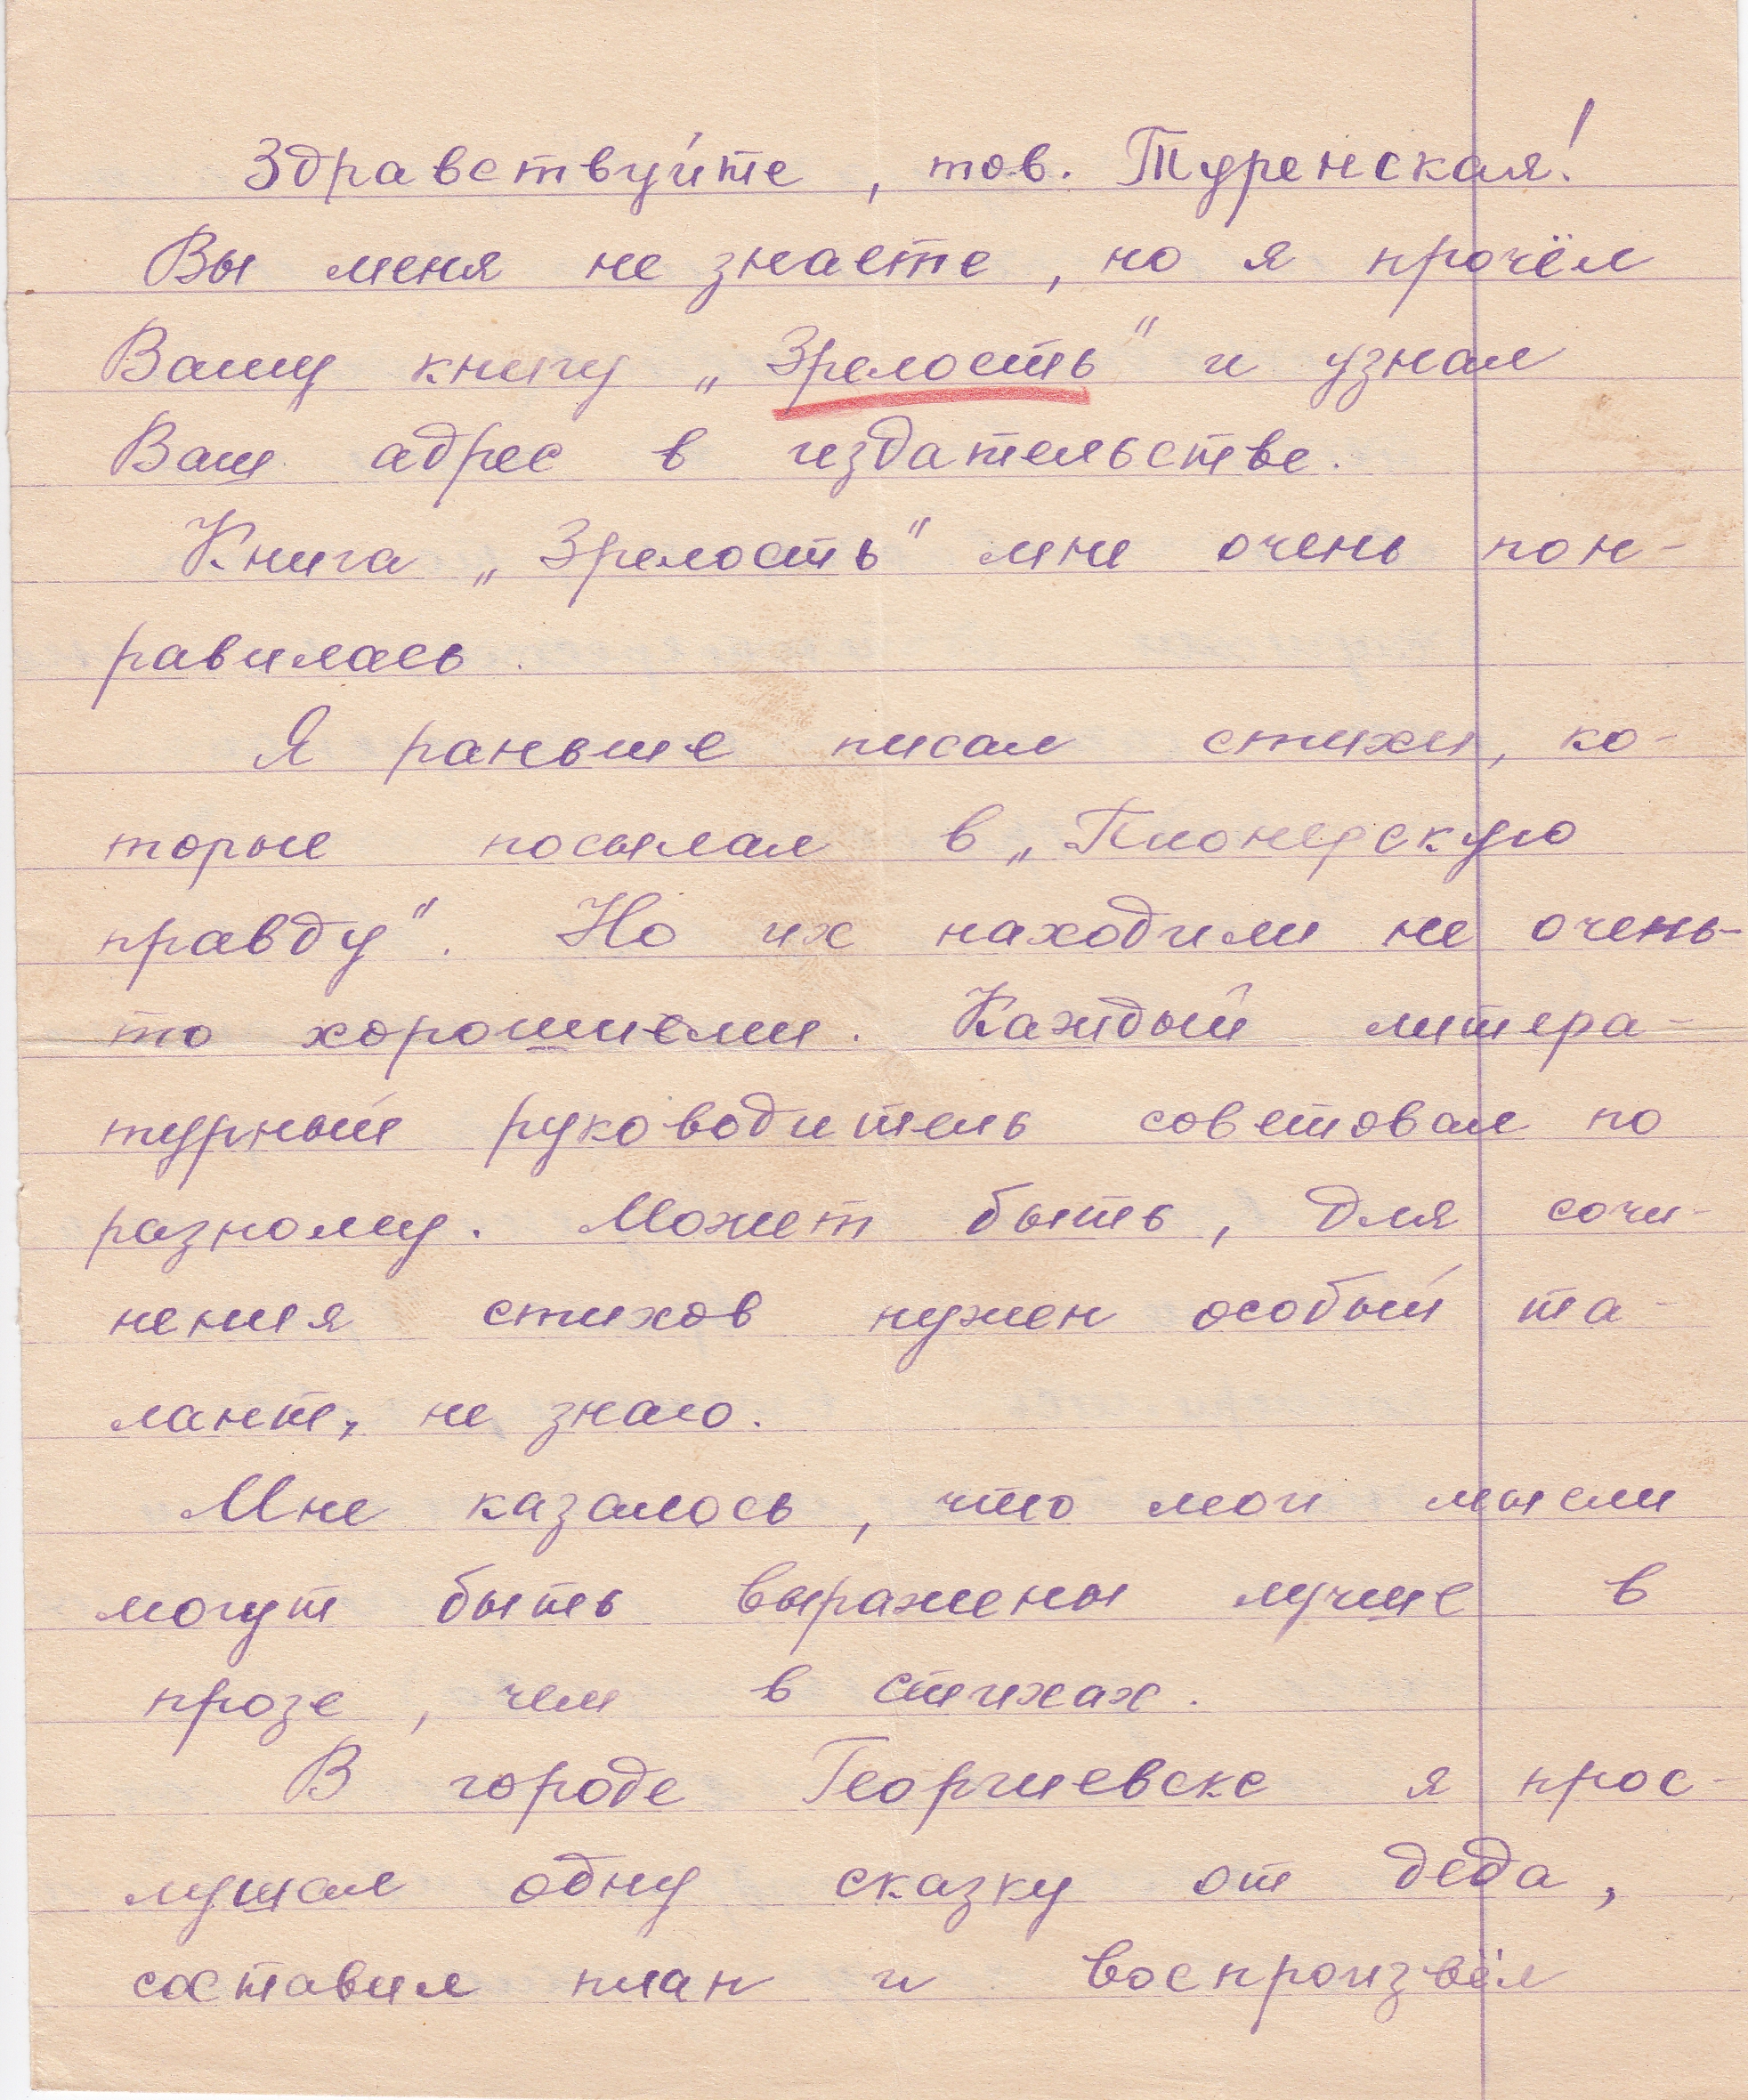 Здравствуйте, тов. Туренская!
Вы меня не знаете, но я прочёл
Вашу книгу „Зрелость" и узнал
Ваш адрес в издательстве.
Книга „Зрелость" мне очень пон-
равилась.
Я раньше писал стихи, ко-
торые посылал в „Пионерскую
правду". Но их находили не очень-
то хорошими. Каждый литера-
турный руководитель советовал по
разному. Может быть, для сочи-
нения стихов нужен особый та-
лант, не знаю.
Мне казалось, что мои мысли
могут быть выражены лучше в
прозе, чем в стихах.
В городе Георгиевске я прос-
лушал одну сказку от деда,
составил план и воспроизвёл